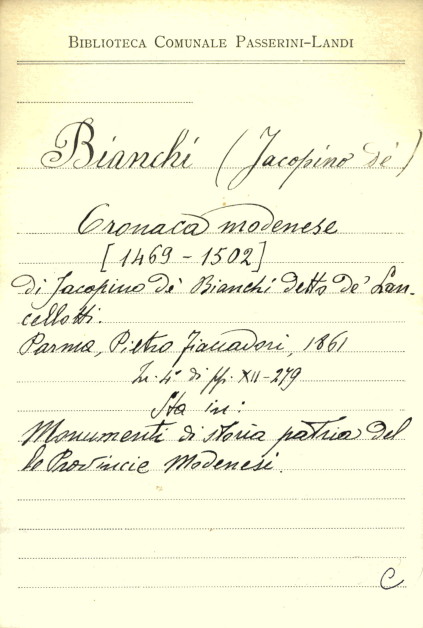 BIBLIOTECA COMUNALE PASSERINI-LANDI
Bianchi (Jacopino de')
Cronaca modenese
[1469 - 1502]
di Jacopino de' Bianchi detto de' Lan-
cellotti.
Parma, Pietro Fiaccadori, 1861
In 4° di pp. XII-279
Sta in:
Monumenti di storia patria del
le Provincie Modenesi.
C